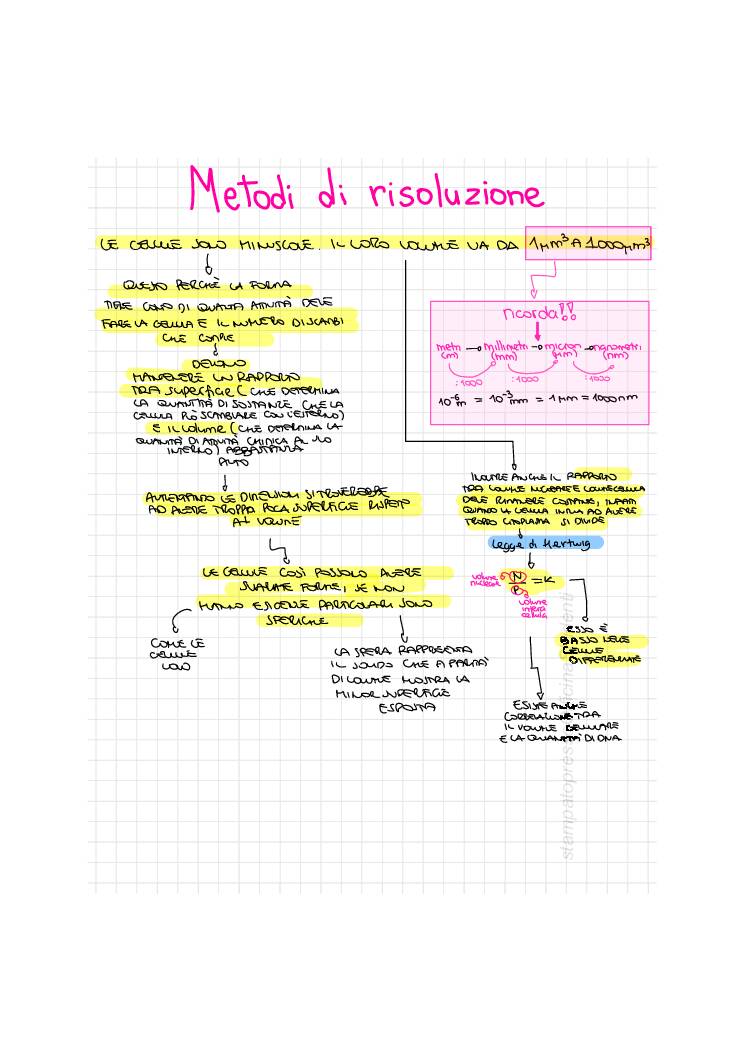 Metodi di risoluzione
LE CELLULE SONO MINUSCOLE. IL LORO VOLUME VA DA 1 μm³ A 1000 μm³
QUESTO PERCHÈ LA FORMA
TIENE CONTO DI QUANTA ATTIVITÀ DEVE
FARE LA CELLULA E IL NUMERO DI SCAMBI
CHE COMPIE
DEVONO
MANTENERE UN RAPPORTO
TRA SUPERFICIE (CHE DETERMINA
LA QUANTITÀ DI SOSTANZE CHE LA
CELLULA PUÒ SCAMBIARE CON L'ESTERNO)
E IL VOLUME (CHE DETERMINA LA
QUANTITÀ DI ATTIVITÀ CHIMICA AL SUO
INTERNO) ABBASTANZA
ALTO
AUMENTANDO LE DIMENSIONI SI TROVEREBBE
AD AVERE TROPPA POCA SUPERFICIE RISPETTO
AL VOLUME
LE CELLULE COSÌ POSSONO AVERE
SVARIATE FORME, SE NON
HANNO ESIGENZE PARTICOLARI SONO
SFERICHE
COME LE
CELLULE
UOVO
LA SFERA RAPPRESENTA
IL SOLIDO CHE A PARITÀ
DI VOLUME MOSTRA LA
MINOR SUPERFICIE
ESPOSTA
ricorda!!
metri → millimetri → micron → nanometri
(m) (mm) (μm) (nm)
:1000 :1000 :1000
10⁻⁶ m = 10⁻³ mm = 1 μm = 1000 nm
INOLTRE ANCHE IL RAPPORTO
TRA VOLUME NUCLEARE E VOLUME CELLULA
DEVE RIMANERE COSTANTE, INFATTI
QUANDO LA CELLULA INIZIA AD AVERE
TROPPO CITOPLASMA SI DIVIDE
Legge di Hertwig
volume
nucleare
N/P = K
volume
intera
cellula
ESSO È
BASSO NELLE
CELLULE
DIFFERENZIATE
ESISTE ANCHE
CORRELAZIONE TRA
IL VOLUME CELLULARE
E LA QUANTITÀ DI DNA